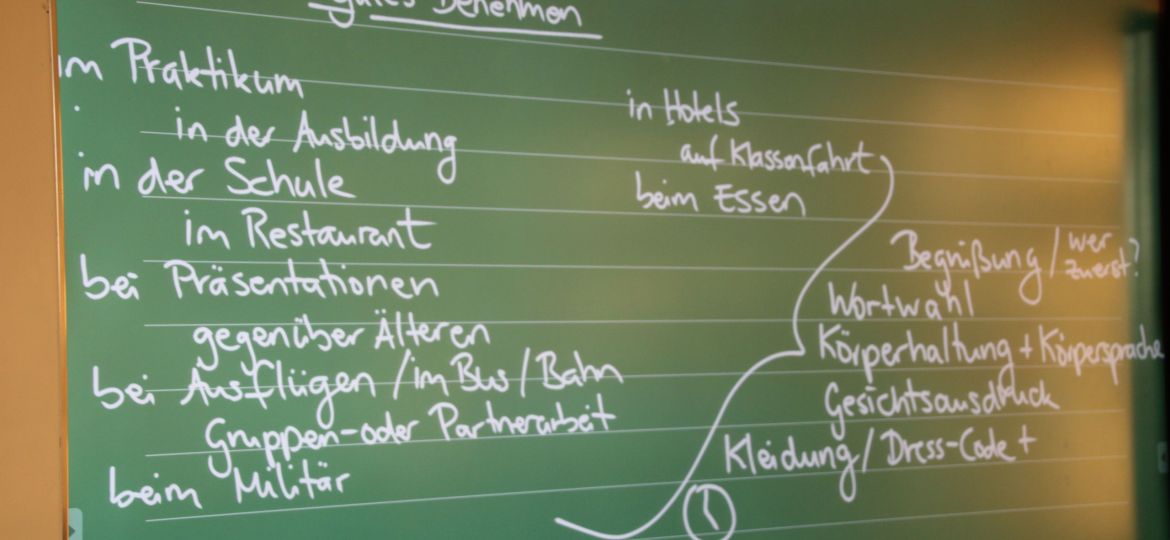 gutes Benehmen
im Praktikum
in der Ausbildung
in der Schule
im Restaurant
bei Präsentationen
gegenüber Älteren
bei Ausflügen / im Bus / Bahn
Gruppen- oder Partnerarbeit
beim Militär
in Hotels
auf Klassenfahrt
beim Essen
Begrüßung / wer zuerst?
Wortwahl
Körperhaltung + Körpersprache
Gesichtsausdruck
Kleidung / Dress-Code +